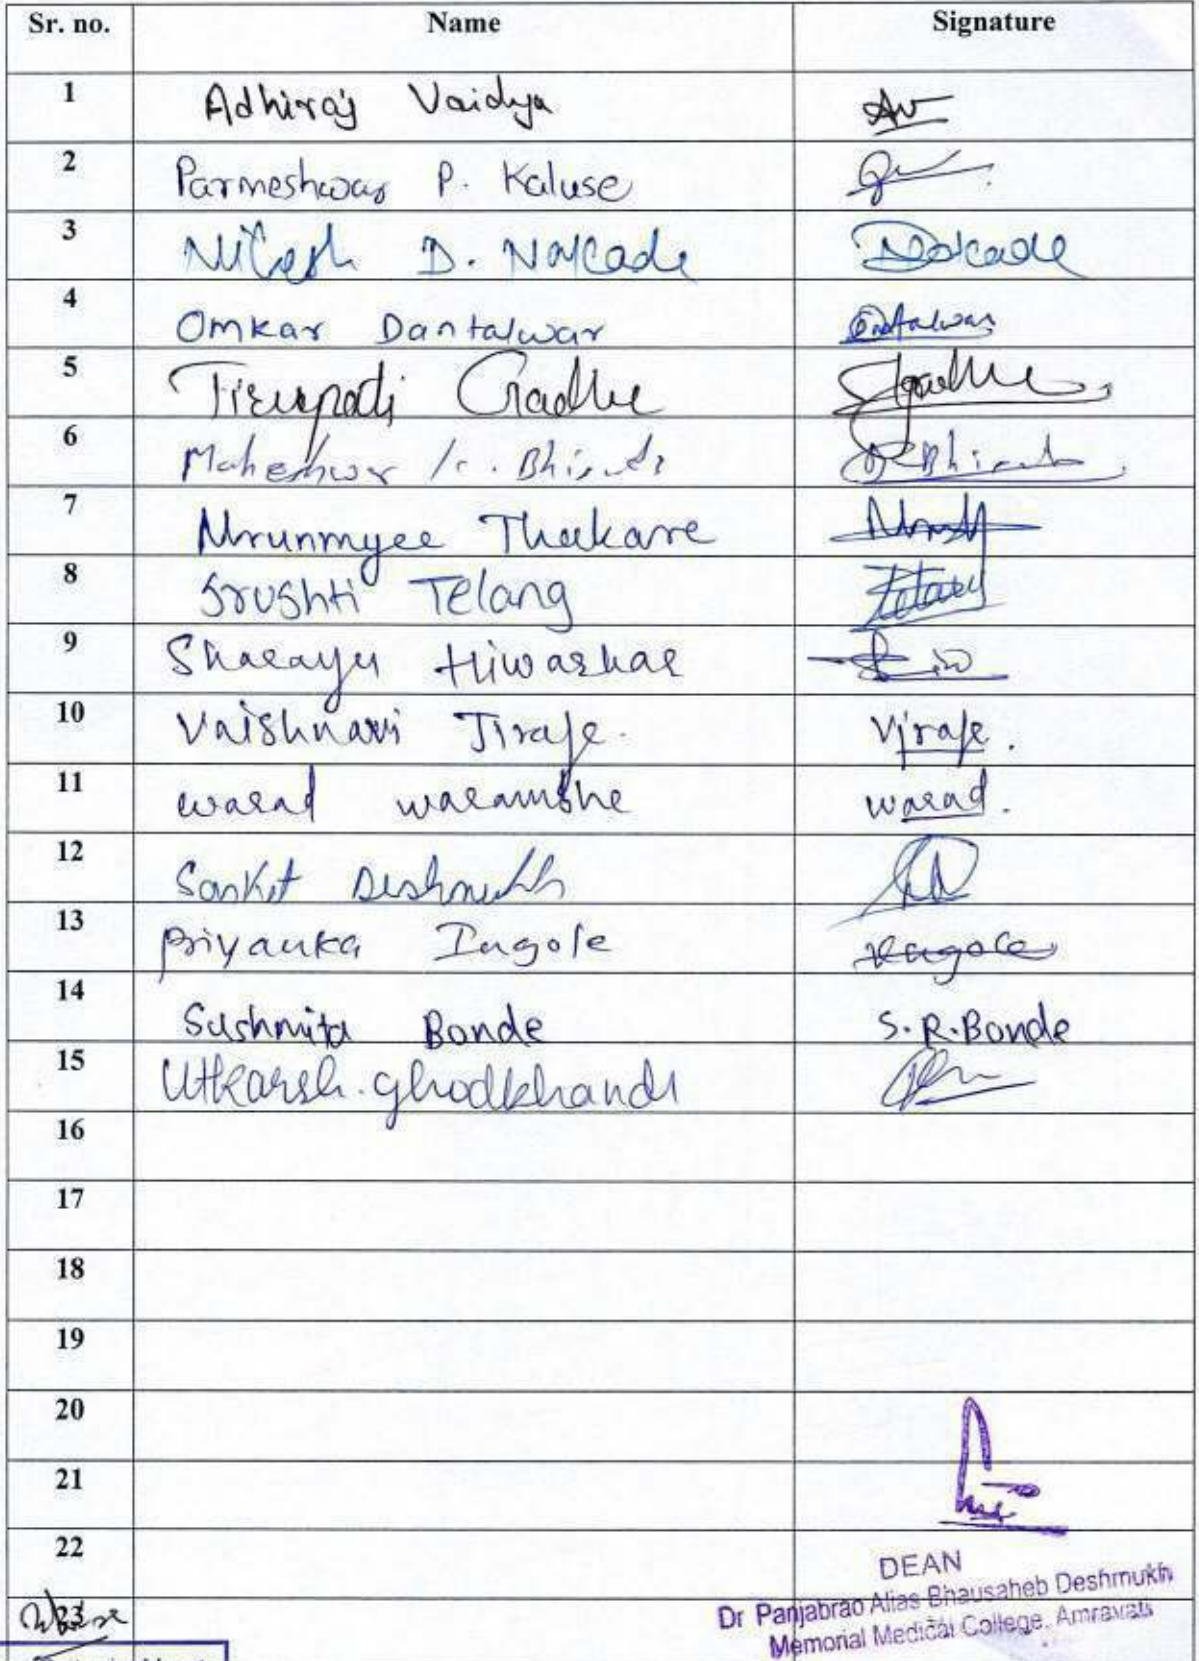 Sr. no. Name Signature
1 Adhiraj Vaidya AV
2 Parmeshwar P. Kaluse
3 Nilesh D. Narcade
4 Omkar Dantalwar Dantalwar
5 Tirupati Gadhe Gadhe
6 Maheshwar
7 Mrunmyee Thakare
8 Srushti Telang Telang
9 Sharayu Hiwarkar
10 Vaishnavi Jiraje. Vjraje.
11 warad warambhe warad.
12 Sanket Deshmukh
13 Priyanka Ingole
14 Sushmita Bonde S.R.Bonde
15 Utkarsh.ghodkhandi
16
17
18
19
20
21
22
DEAN
23
Dr Panjabrao Alias Bhausaheb Deshmukh
Memorial Medical College, Amravati